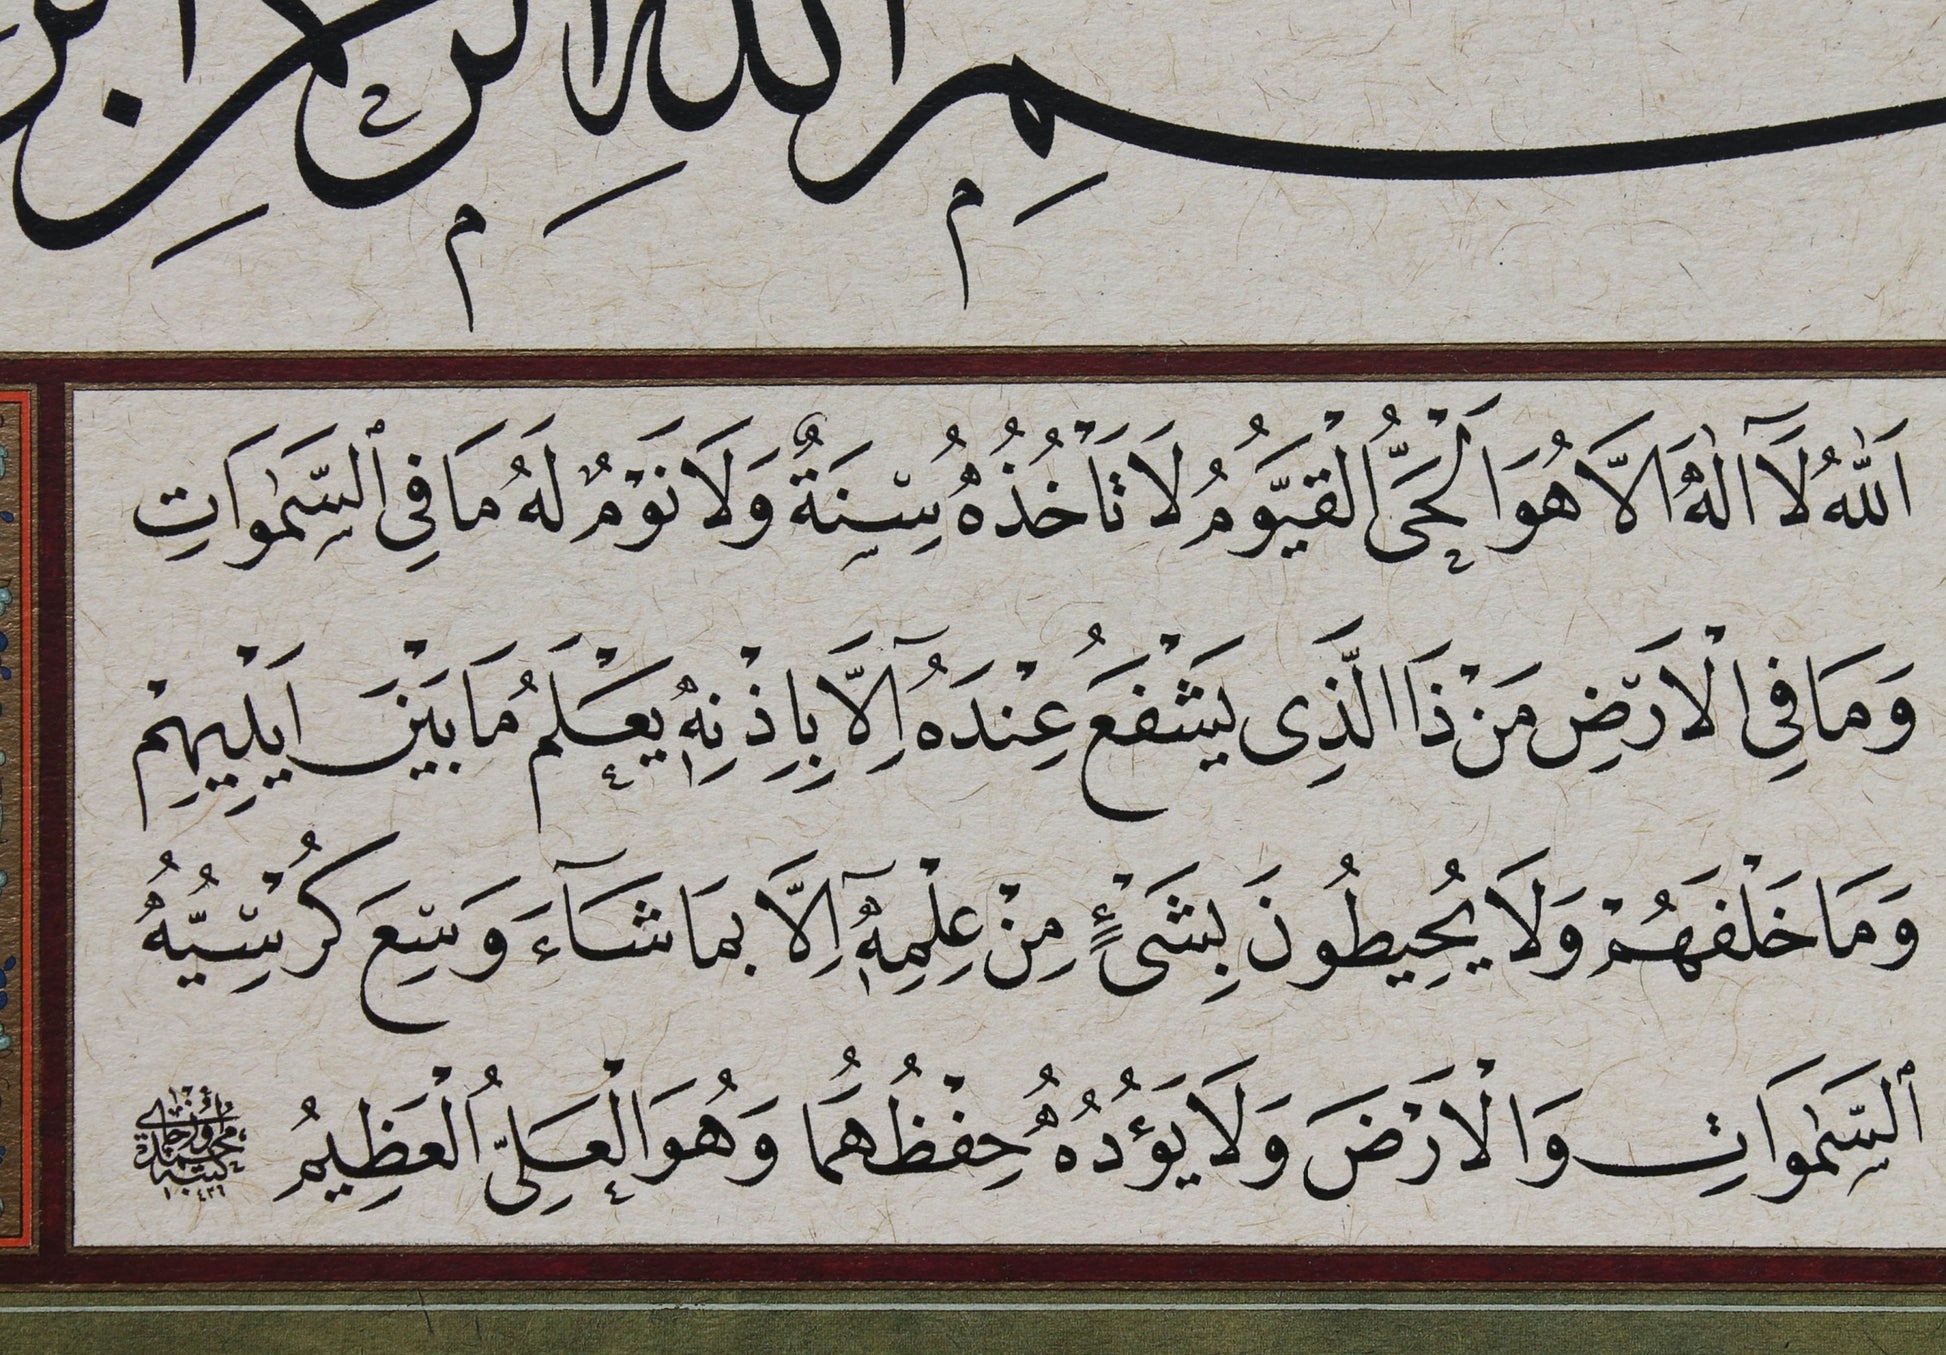 بِسْمِ اللهِ الرَّحْمٰنِ
اَللّٰهُ لَآ اِلٰهَ اِلَّا هُوَ اَلْحَىُّ الْقَيُّومُ لَا تَاْخُذُهُ سِنَةٌ وَلَا نَوْمٌ لَهُ مَا فِى ٱلسَّمٰوَاتِ
وَمَا فِى الْاَرْضِ مَنْ ذَا الَّذِى يَشْفَعُ عِنْدَهُٓ اِلَّا بِاِذْنِهٖ يَعْلَمُ مَا بَيْنَ اَيْدِيهِمْ
وَمَا خَلْفَهُمْ وَلَا يُحِيطُونَ بِشَىْءٍ مِنْ عِلْمِهٖٓ اِلَّا بِمَا شَآءَ وَسِعَ كُرْسِيُّهُ
ٱلسَّمٰوَاتِ وَالْاَرْضَ وَلَا يَؤُدُهُ حِفْظُهُمَا وَهُوَ الْعَلِىُّ الْعَظِيمُ
كتبه محمد